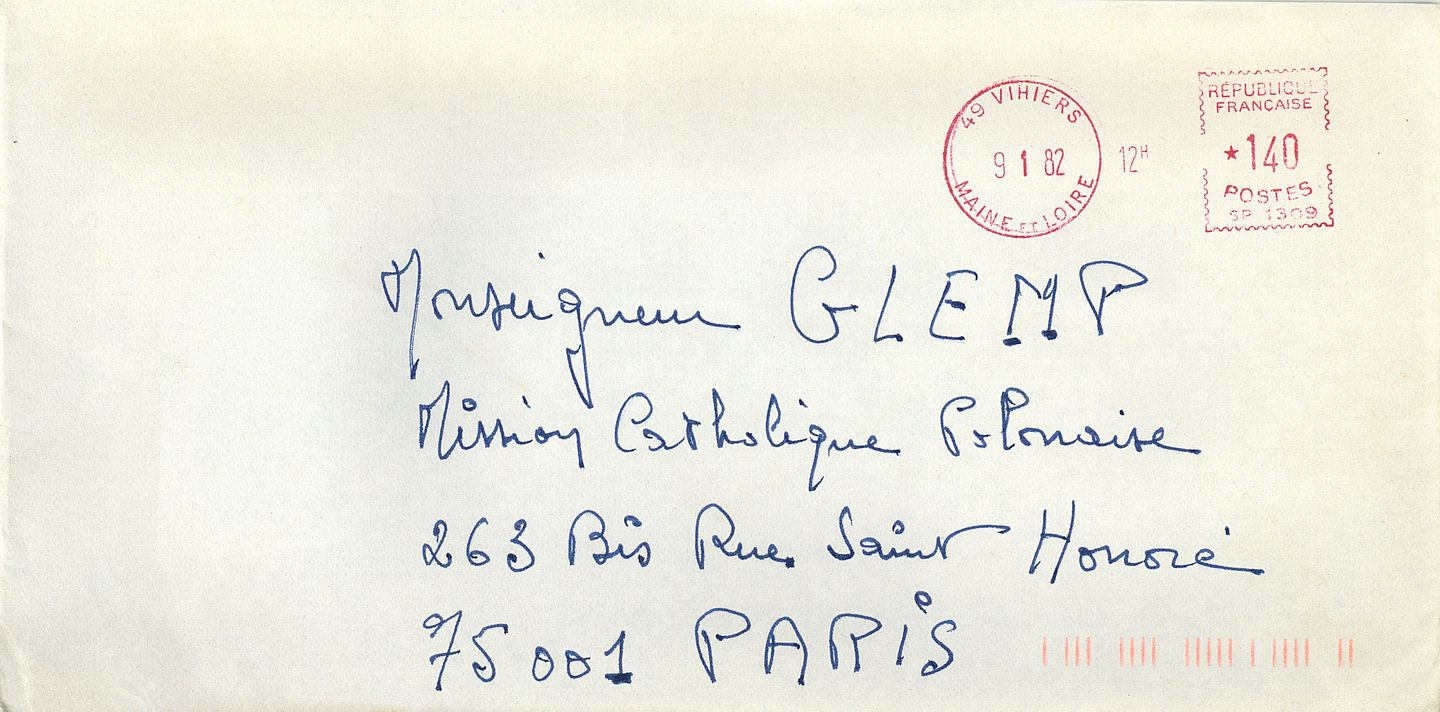 49 VIHIERS
9 1 82
MAINE ET LOIRE
12H
RÉPUBLIQUE
FRANÇAISE
★140
POSTES
SP 1309
Monseigneur GLEMP
Mission Catholique Polonaise
263 Bis Rue Saint Honoré
75001 PARIS